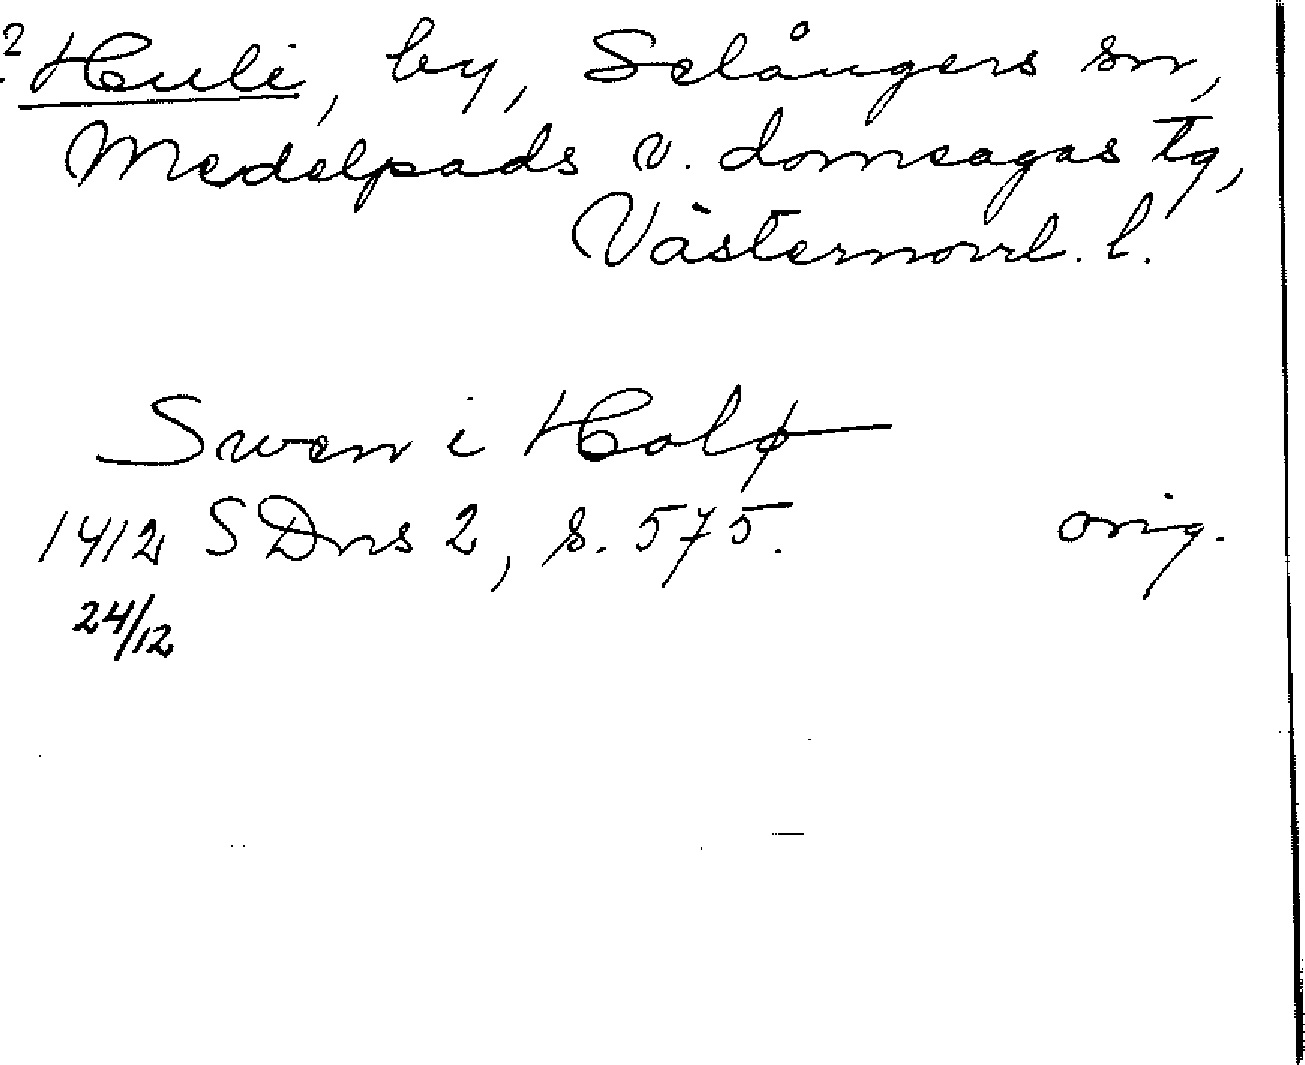 ? Huli, by, Selångers sn,
Medelpads v. domsagas tg,
Västernorrl. l.
Swen i Holø
1412 SDns 2, s. 575. orig.
24/12